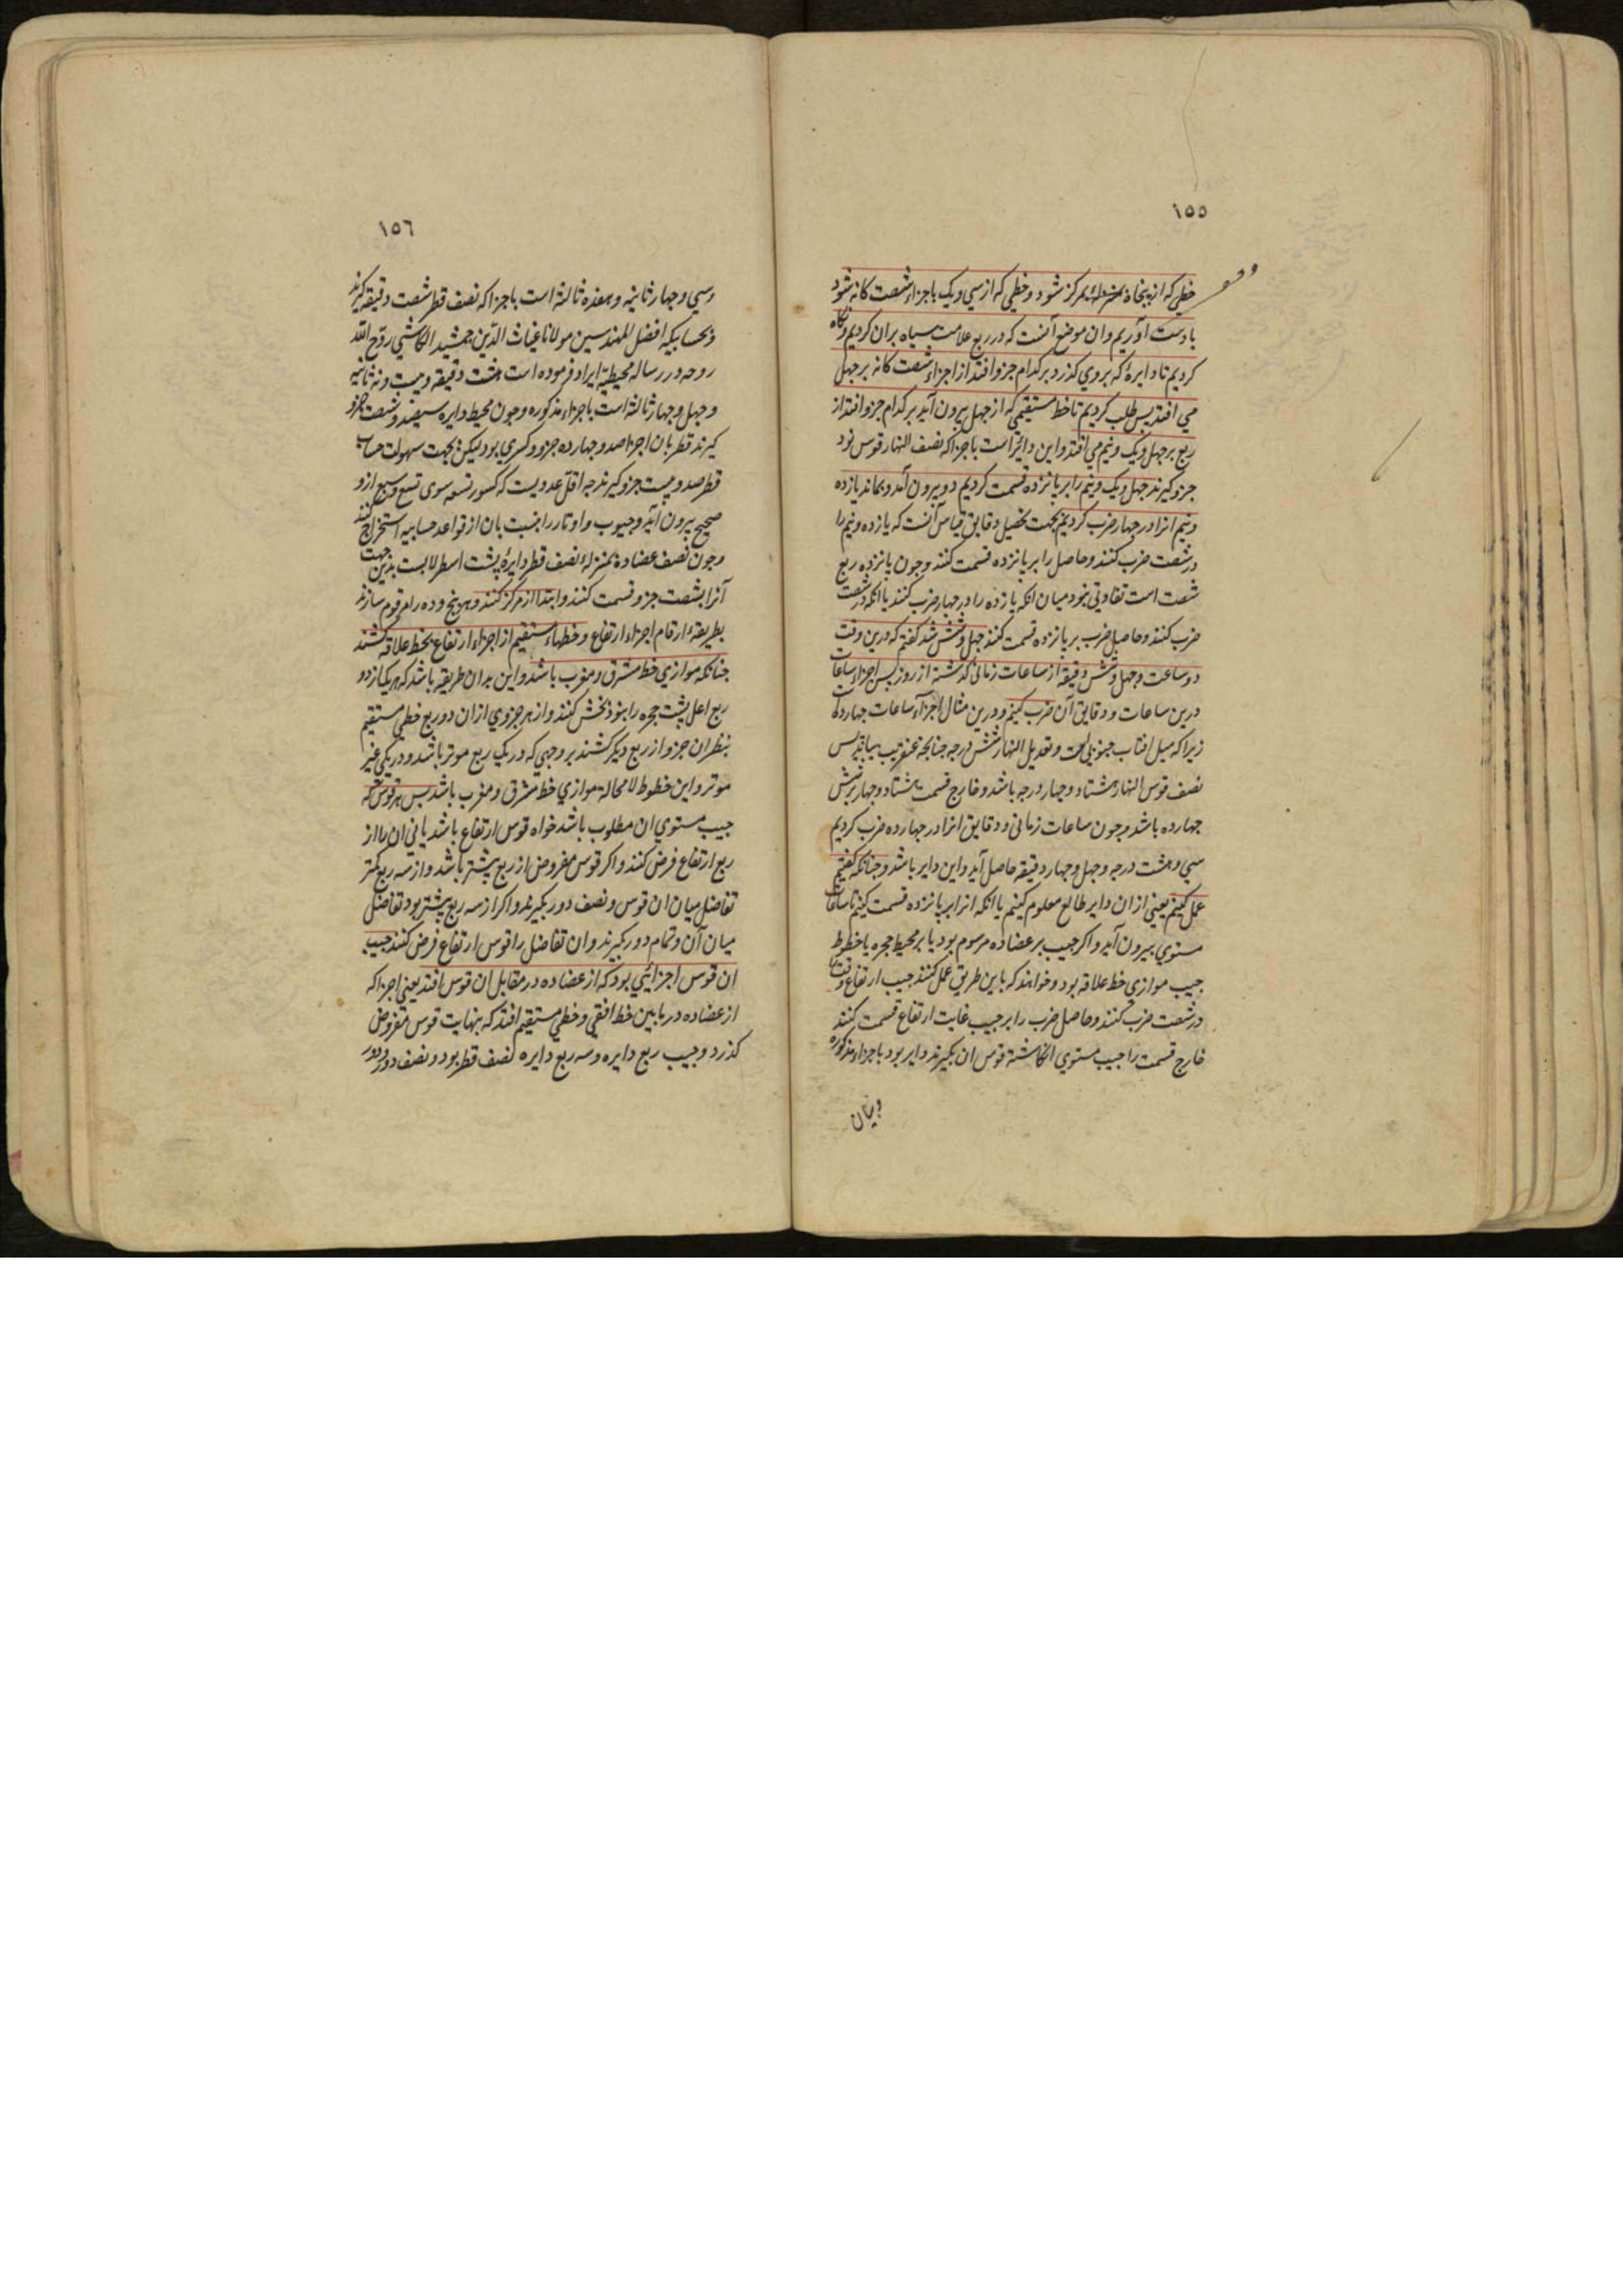 ١٥٥
خطی که از پنجاه بمرکز شود و خطی که از سی و یک باجزاء شصت کانه شود
بادست آوریم وان موضع آنست که در ربع علامت سیاه بران کردیم ونکاه
کردیم تا دایرۀ که بروی کذرد بر کدام جزو افتد از اجزاء شصت کانه بر جهل
می افتد پس طلب کردیم تا خط مستقیمی که از جهل بیرون آید بر کدام جزو افتد از
ربع بر جهل ویک ونیم می افتد واین دایر است باجزا که نصف النهار قوس نود
جزو کیرند جهل ویک ونیم را بر بانزده قسمت کردیم دو بیرون آمد وبماند یازده
ونیم انرا در جهار ضرب کردیم بجهت تحصیل دقایق قیاس آنست که یازده ونیم را
در شصت ضرب کنند وحاصل را بر بانزده قسمت کنند وجون بانزده ربع
شصت است تفاوتی نبود میان انکه یازده را در جهار ضرب کنند یا انکه در شصت
ضرب کنند وحاصل ضرب بر بانزده قسمت کنند جهل وشش شد کفتم که درین وقت
دو ساعت وجهل وشش دقیقه از ساعات زمانی کذشته از روز پس اجزاء ساعات
درین ساعات ودقایق آن ضرب کنیم ودرین مثال اجزاء ساعات جهارده است
زیرا که میل افتاب جنوبی است وتعدیل النهار شش درجه جنانجه عنقریب بیاید پس
نصف قوس النهار هشتاد وجهار درجه باشد وخارج قسمت هشتاد وجهار بر شش
جهارده باشد وجون ساعات زمانی ودقایق انرا در جهارده ضرب کردیم
سی وهشت درجه وجهل وجهار دقیقه حاصل آید واین دایر باشد وجنانکه کفتیم
عمل کنیم یعنی از ان دایر طالع معلوم کنیم یا انکه انرا بر بانزده قسمت کنیم تا ساعات
مستوی بیرون آید واکر جیب بر عضاده مرسوم بود یا بر محیط حجره یا خطوط
جیب موازی خط علاقه بود وخواهند که باین طریق عمل کنند جیب ارتفاع وقت را
در شصت ضرب کنند وحاصل ضرب را بر جیب غایت ارتفاع قسمت کنند
خارج قسمت را جیب مستوی انکاشته قوس ان بکیرند دایر بود باجزاء مذکوره
وبیان
١٥٦
وسی وجهار ثانیه وهفده ثالثه است باجزا که نصف قطر شصت دقیقه کیرند
وبحسابیکه افضل المهندسین مولانا غیاث الدین جمشید الکاشی روح الله
روحه در رساله محیطیه ایراد فرموده است هشت دقیقه وبیست ونه ثانیه
وجهل وجهار ثالثه است باجزاء مذکوره وجون محیط دایره سیصد وشصت جزو
کیرند قطر بان اجزا صد وجهارده جزو وکسری بود لیکن بجهت سهولت حساب
قطر صد وبیست جزو کیرند جه اقل عددیست که کسور تسعه سوی تسع وسبع از و
صحیح بیرون آید وجیوب واوتار را بنسبت بان از قواعد حسابیه استخراج کنند
وجون نصف عضاده بمنزلۀ نصف قطر دایرۀ پشت اسطرلابست بدین جهت
آنرا بشصت جزو قسمت کنند وابتدا از مرکز کنند وبر پنج وده رام قوم سازند
بطریقۀ ارقام اجزاء ارتفاع وخطهاء مستقیم از اجزاء ارتفاع بخط علاقه کشند
جنانکه موازی خط مشرق ومغرب باشد واین بدان طریقه باشد که هریک از دو
ربع اعلی پشت حجره را بنود بخش کنند واز هر جزوی از ان دو ربع خطی مستقیم
بنظر ان جزو از ربع دیکر کشند بر وجهی که در یک ربع موثر باشد ودر یکی غیر
موثر واین خطوط لا محالة موازی خط مشرق ومغرب باشد پس هر قوس که
جیب مستوی ان مطلوب باشد خواه قوس ارتفاع باشد یا نی ان را از
ربع ارتفاع فرض کنند واکر قوس مفروض از ربع بیشتر باشد واز سه ربع کمتر
تفاضل میان ان قوس ونصف دور بکیرند واکر از سه ربع بیشتر بود تفاضل
میان آن وتمام دور کیرند وان تفاضل را قوس ارتفاع فرض کنند جیب
ان قوس اجزائی بود که از عضاده در مقابل ان قوس افتد یعنی اجزا که
از عضاده در ما بین خط افقی وخطی مستقیم افتد که بنهایت قوس مفروض
کذرد وجیب ربع دایره وسه ربع دایره نصف قطر بود ونصف دور ودور